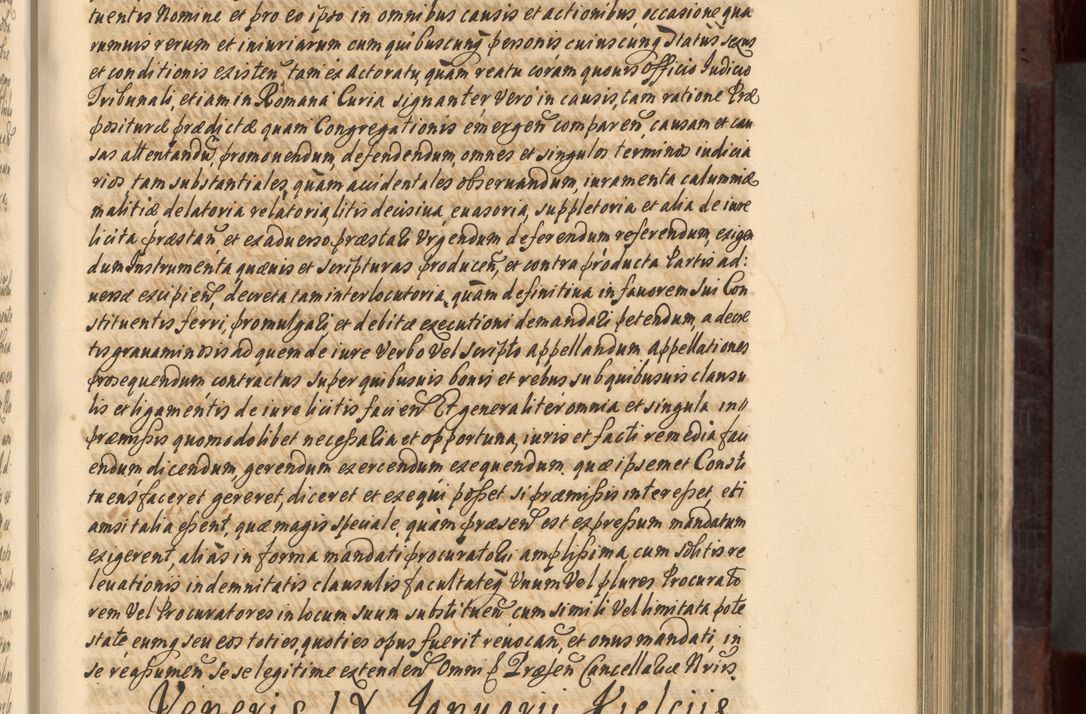 tuentis Nomine et pro eo ipso in omnibus causis et actionibus occasione qua
rumuis rerum et iniuriarum cum quibuscunq personis cuiuscunq status sexus
et conditionis existen tam ex Actoratu, quàm reatu coràm quouis Officio Iudicio
Tribunali, etiam in Romana Curia signanter Verò in causis, tam ratione Præ
positurǽ prædictæ quam Congregationis emergen comparen causam et cau
sas attentandũ, promouendum, defendendum, omnes et singulos terminos iudicia
rios, tam substantiales, quàm accidentales obseruandum, iuramenta calumniæ
malitiæ delatoria relatoria, litis decisiua, euasoria, suppletoria et alia de iure
licita præstan et ex aduerso præstari Vrgendum deferendum referendum, exigen
dum Instrumenta quæuis et scripturas producen, et contra producta Partis ad:
uersæ excipien, decreta tam interlocutoria, quàm definitiua in fauorem sui Con
stituentis ferri, promulgari et debitæ executioni demandari petendum, a decre
tis grauaminosis ad quem de iure Verbo Vel scripto appellandum Appellationes
prosequendum contractus super quibusuis bonis et rebus sub quibusuis clausu
lis et ligamentis de iure licitis facien Et generaliter omnia et singula in
præmissis quomodolibet necessaria et opportuna, iuris et facti remedia faci
endum dicendum, gerendum exercendum exequendum. quæ ipsemet Consti
tuens faceret gereret, diceret et exequi posset si præmissis interesset, eti
amsi talia essent, quæ magis speciale, quàm præsen est expressum mandatum
exigerent, aliàs in forma mandati procuratorii amplissima, cum solitis re
leuationis indemnitatis clausulis facultateq Vnum Vel plures Procurato
rem Vel Procuratores in locum suum substituen cum simili Vel limitata pote
state eumq seu eos toties, quoties opus fuerit reuocan, et onus mandati, in
se reassumen se se legitime extenden Omni Præsen Cancellariæ Nris.
Veneris IX Ianuarii Kielciis